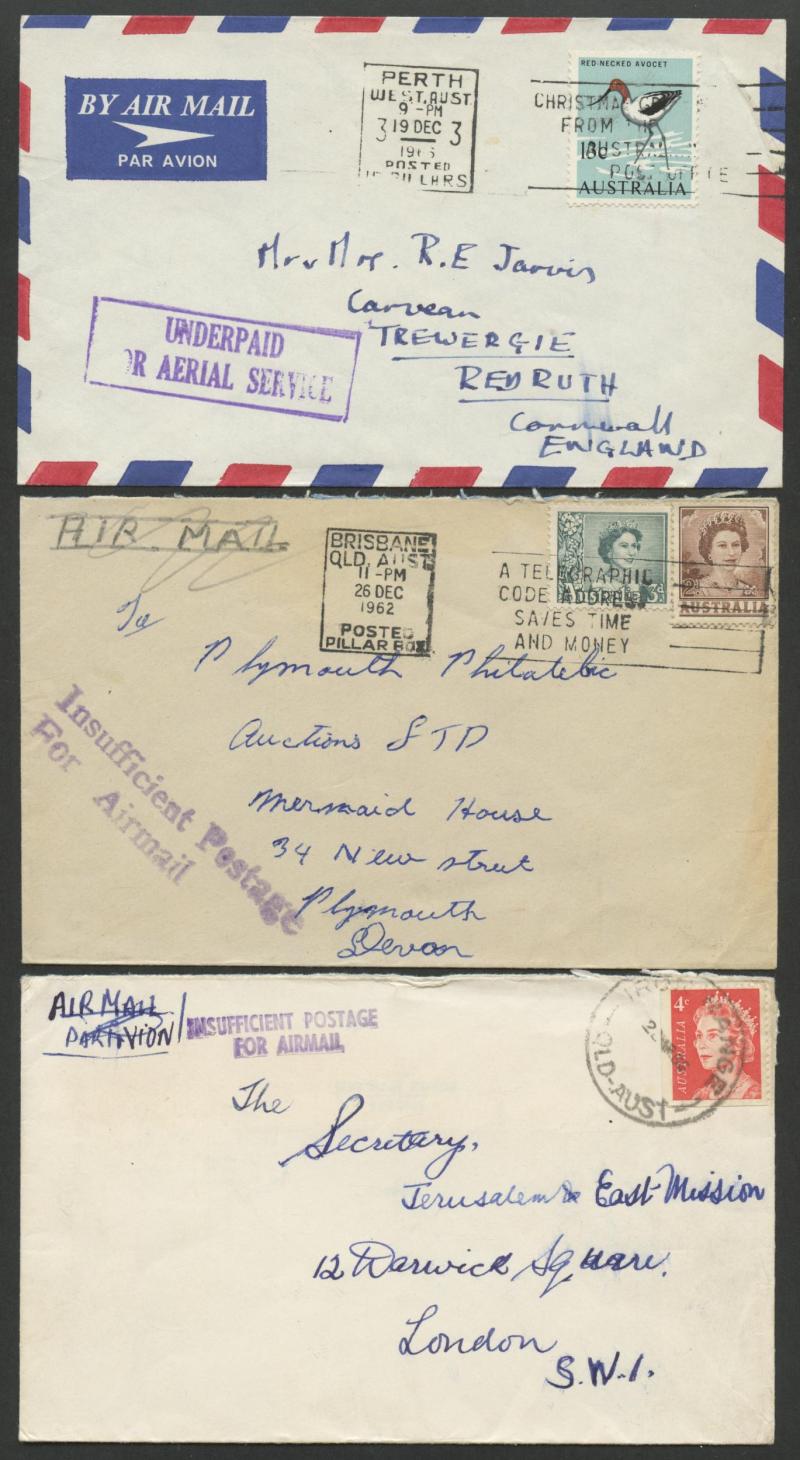 BY AIR MAIL
PAR AVION
PERTH
WEST. AUST.
9 - PM
3 19 DEC 3
POSTED
RED-NECKED AVOCET
CHRISTMAS
FROM THE
POST OFFICE
AUSTRALIA
Mr & Mrs. R.E Jarvis
Carvean
TREWERGIE
REDRUTH
Cornwall
ENGLAND
UNDERPAID
OR AERIAL SERVICE
AIR. MAIL
BRISBANE
QLD. AUST.
11 - PM
26 DEC
1962
POSTED
PILLAR BOX
A TELEGRAPHIC
CODE ADDRESS
SAVES TIME
AND MONEY
3d
2d
AUSTRALIA
To
Plymouth Philatelic
Auctions LTD
Mermaid House
34 New street
Plymouth
Devon
Insufficient Postage
For Airmail
AIR MAIL
PAR AVION
INSUFFICIENT POSTAGE
FOR AIRMAIL
4c
AUSTRALIA
QLD-AUST
The
Secretary,
Jerusalem & East Mission
12 Warwick Square.
London
S.W.1.